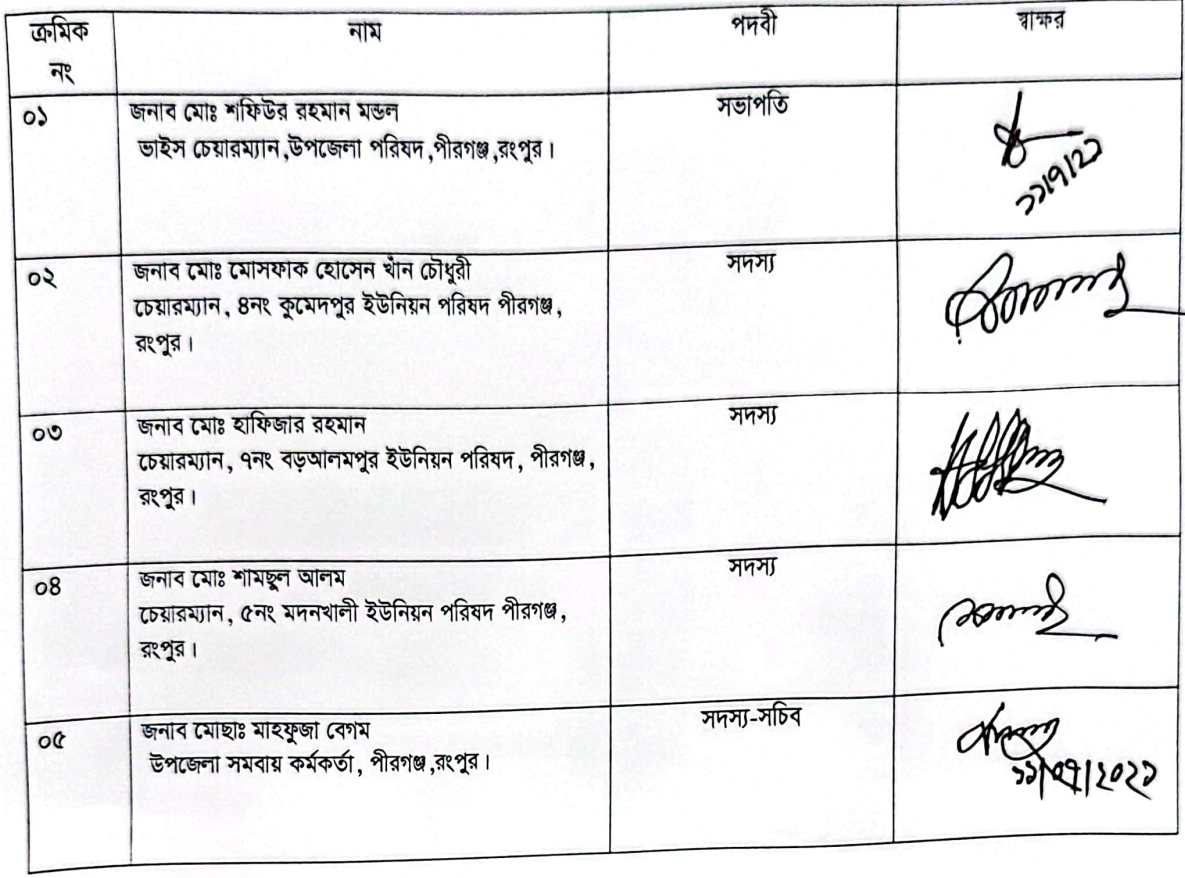 ক্রমিক নং নাম পদবী স্বাক্ষর
০১ জনাব মোঃ শফিউর রহমান মন্ডল সভাপতি
ভাইস চেয়ারম্যান,উপজেলা পরিষদ,পীরগঞ্জ,রংপুর।
১১/৭/২১
০২ জনাব মোঃ মোসফাক হোসেন খাঁন চৌধুরী সদস্য
চেয়ারম্যান, ৪নং কুমেদপুর ইউনিয়ন পরিষদ পীরগঞ্জ,
রংপুর।
০৩ জনাব মোঃ হাফিজার রহমান সদস্য
চেয়ারম্যান, ৭নং বড়আলমপুর ইউনিয়ন পরিষদ, পীরগঞ্জ,
রংপুর।
০৪ জনাব মোঃ শামছুল আলম সদস্য
চেয়ারম্যান, ৫নং মদনখালী ইউনিয়ন পরিষদ পীরগঞ্জ,
রংপুর।
০৫ জনাব মোছাঃ মাহফুজা বেগম সদস্য-সচিব
উপজেলা সমবায় কর্মকর্তা, পীরগঞ্জ,রংপুর।
১১/০৭/২০২১